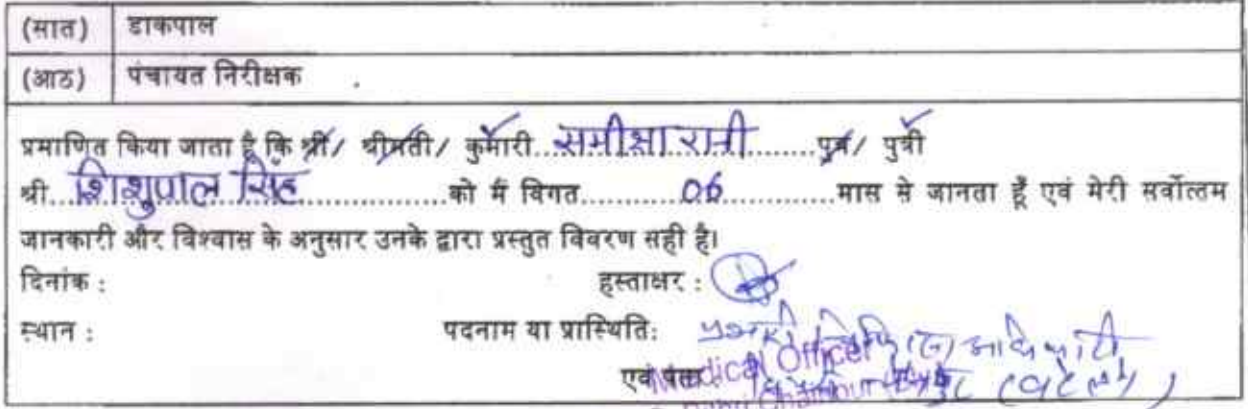 (सात) डाकपाल
(आठ) पंचायत निरीक्षक
प्रमाणित किया जाता है कि श्री/ श्रीमती/ कुमारी..समीक्षा रानी..........पुत्र/ पुत्री
श्री....शिशुपाल सिंह..................को मैं विगत............06............मास से जानता हूँ एवं मेरी सर्वोत्तम
जानकारी और विश्वास के अनुसार उनके द्वारा प्रस्तुत विवरण सही है।
दिनांक : हस्ताक्षर :
स्थान : पदनाम या प्रास्थिति:
एवं पता Medical Officer